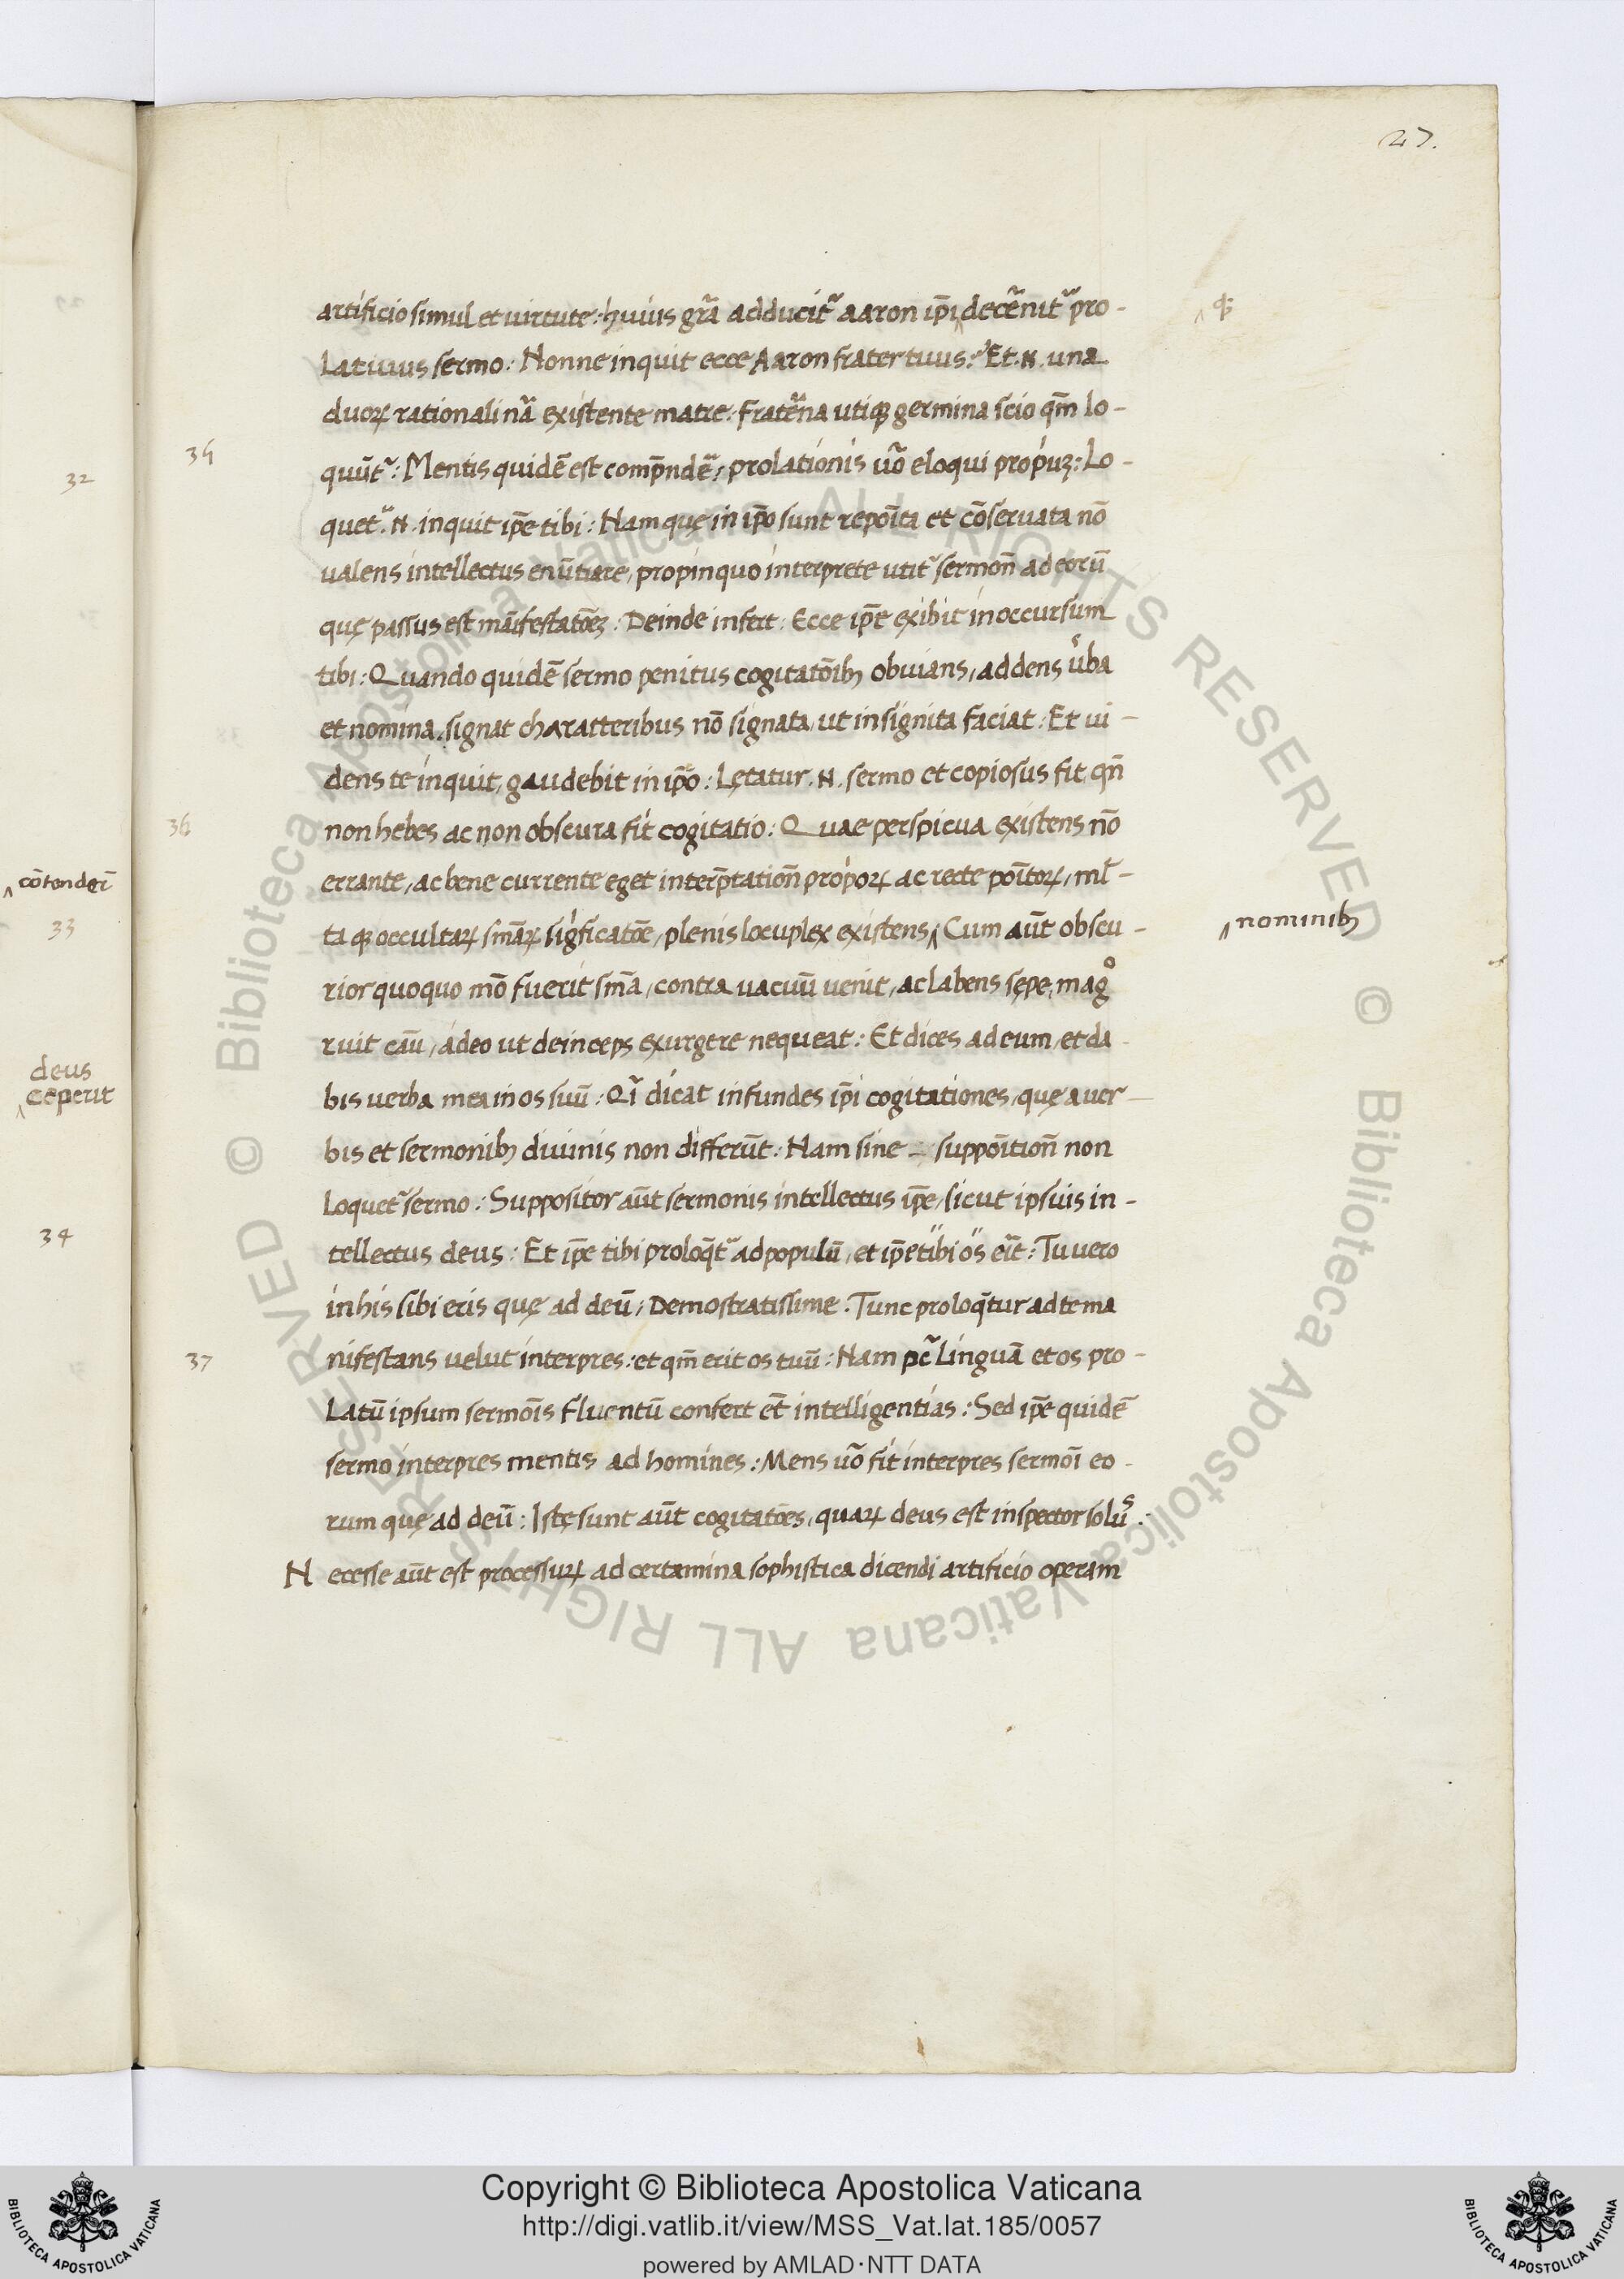 27.
artificio simul et uirtute: huius gr̃a adducit᷑ aaron ip̄i ‸ decẽnit᷑ pro-
latiuus sermo: Nonne inquit ecce Aaron frater tuus: Et .N. una
duoꝝ rationali nã existente matre: fratẽna utiqꝫ germina scio qm̃ lo-
quũt᷑: Mentis quidẽ est comp̄ndẽ: prolationis uõ eloqui propiuꝫ: Lo-
quet᷑ .N. inquit ip̄e tibi: Nam quę in ip̄o sunt repoĩta et cõseruata nõ
ualens intellectus enũtiare, propinquo interprete utit᷑ sermoñ ad eorũ
quę passus est mãifestatõeꝫ: Deinde infert: Ecce ip̄e exibit in occursum
tibi: Quando quidẽ sermo penitus cogitatõibꝫ obuians, addens ůba
et nomina, signat charatteribus nõ signata, ut insignita faciat: Et ui-
dens te inquit, gaudebit in ip̄o: Lętatur .N. sermo et copiosus fit, qñ
non hebes ac non obscura fit cogitatio: Quae perspicua existens nõ
errante, ac bene currente eget interp̄tationñ propoꝝ ac recte poĩtoꝝ, ml̃-
ta qꝫ occultaꝝ sm̃aꝝ sigficatõe, plenis locuplex existens ‸ Cum aũt obscu-
rior quoquo mõ fuerit sm̃a, contra uacuũ uenit, ac labens sępe, magͦ
ruit cãu, adeo ut deinceps exurgere nequeat: Et dices ad eum, et da-
bis uerba mea in os suũ: Qĩ dicat infundes ip̄i cogitationes, quę a uer-
bis et sermonibꝫ diuinis non differũt: Nam sine – suppoĩtioñ non
loquet᷑ sermo: Suppositor aũt sermonis intellectus ip̄e, sicut ipsuis in-
tellectus deus: Et ip̄e tibi proloq̃t᷑ ad populũ, et ip̄e tibi os eĩt: Tu uero
in his sibi eris quę ad deũ, Demostratissime. Tunc proloq̃tur ad te ma
nifestans uelut interpres: et qm̃ erit os tuũ: Nam pc̃ linguã et os pro-
latũ ipsum sermõis fluentũ confert et̃ intelligentias: Sed ip̄e quidẽ
sermo interpres mentis ad homines: Mens uõ fit interpres sermõi eo-
rum quę ad deũ: Istę sunt aũt cogitatões, quaꝝ deus est inspector soluˢ.
Necesse aũt est processuꝝ ad certamina sophistica dicendi artificio operam
‸ qꝫ
‸ nominibꝫ
36
37
32
‸ cõtenderĩ
33
deus
‸ ceperit
34
Copyright © Biblioteca Apostolica Vaticana
http://digi.vatlib.it/view/MSS_Vat.lat.185/0057
powered by AMLAD·NTT DATA
BIBLIOTECA APOSTOLICA VATICANA
BIBLIOTECA APOSTOLICA VATICANA
© Biblioteca Apostolica Vaticana ALL RIGHTS RESERVED © Biblioteca Apostolica Vaticana ALL RIGHTS RESERVED